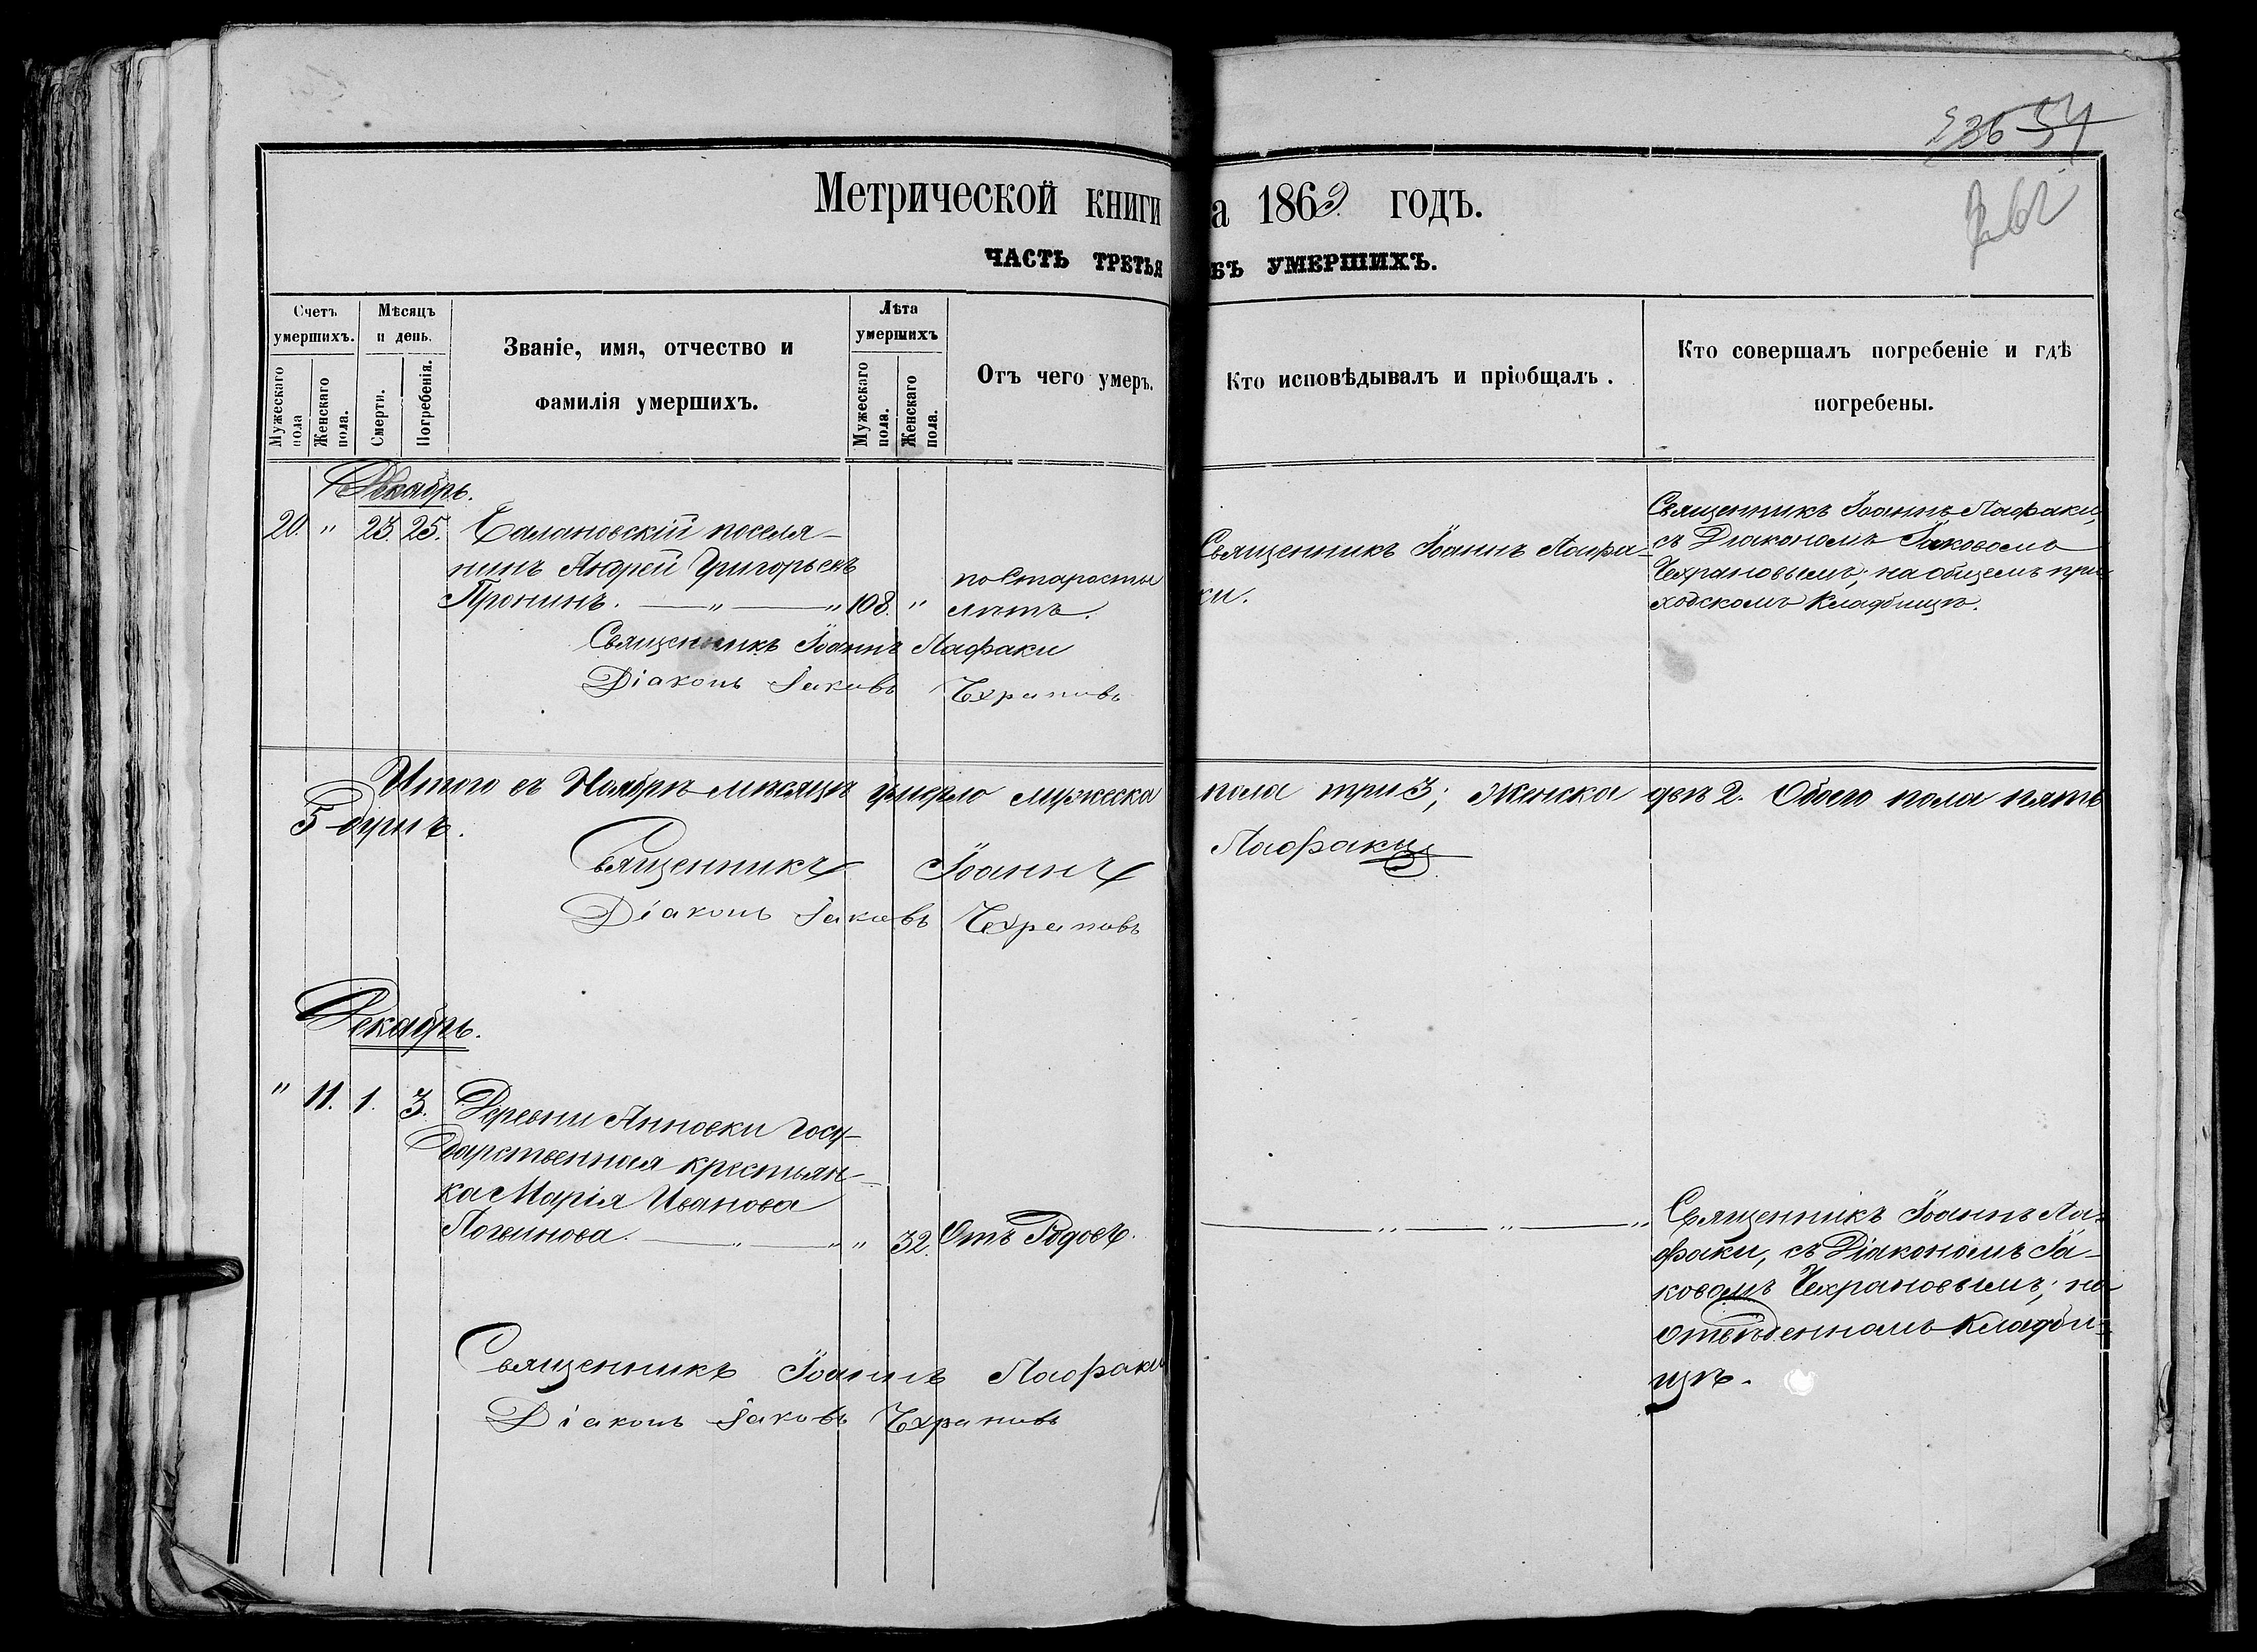 236 54
262
Метрической книги
а 1869 годъ.
ЧАСТЬ ТРЕТЬЯ
БЪ УМЕРШИХЪ.
Счетъ умершихъ.
Мужескаго пола
Женскаго пола.
Мѣсяцъ и день.
Смерти.
Погребенія.
Званіе, имя, отчество и
фамилія умершихъ.
Лѣта умершихъ
Мужескаго пола.
Женскаго пола.
Отъ чего умеръ.
Кто исповѣдывалъ и пріобщалъ.
Кто совершалъ погребеніе и гдѣ
погребены.
Декабрь.
20. " 23. 25. поселя-
нинъ Андрей Григорьевъ
Пронинъ. — " — " 108. "
по Старости
лѣтъ.
Священникъ Іоаннъ Лафа-
ки.
Священникъ Іоаннъ Лафаки,
съ Діакономъ Іаковомъ
Чехрановымъ; на общемъ при-
ходскомъ кладбищѣ.
Священникъ Іоаннъ Лафаки
Діаконъ Іаковъ Чехрановъ
Итого въ Ноябрѣ мѣсяцѣ умерло мужеска пола три 3; женска двѣ 2. Обоего пола пять
5 душъ.
Священникъ Іоаннъ Лафаки
Діаконъ Іаковъ Чехрановъ
Декабрь.
" 11. 1. 3. Деревни Анновки госу-
дарственная крестьян-
ка Марія Иванова
Логвинова. — " — " " 32. Отъ Родовъ.
— " — " — "
Священникъ Іоаннъ Ла-
факи, съ Діакономъ Іа-
ковомъ Чехрановымъ; на
отведенномъ кладби-
щѣ.
Священникъ Іоаннъ Лафаки
Діаконъ Іаковъ Чехрановъ